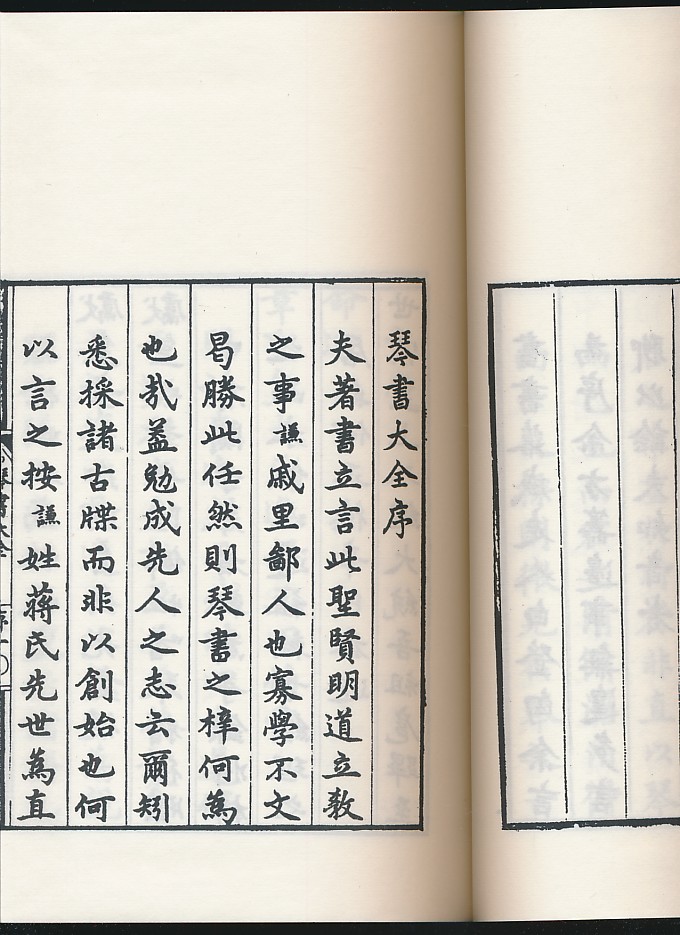 琴書大全序
夫著書立言此聖賢明道立教
之事謙戚里鄙人也寡學不文
曷勝此任然則琴書之梓何為
也哉蓋勉成先人之志云爾矧
悉採諸古牒而非以創始也何
以言之按謙姓蔣氏先世為直
琴書大全
序一